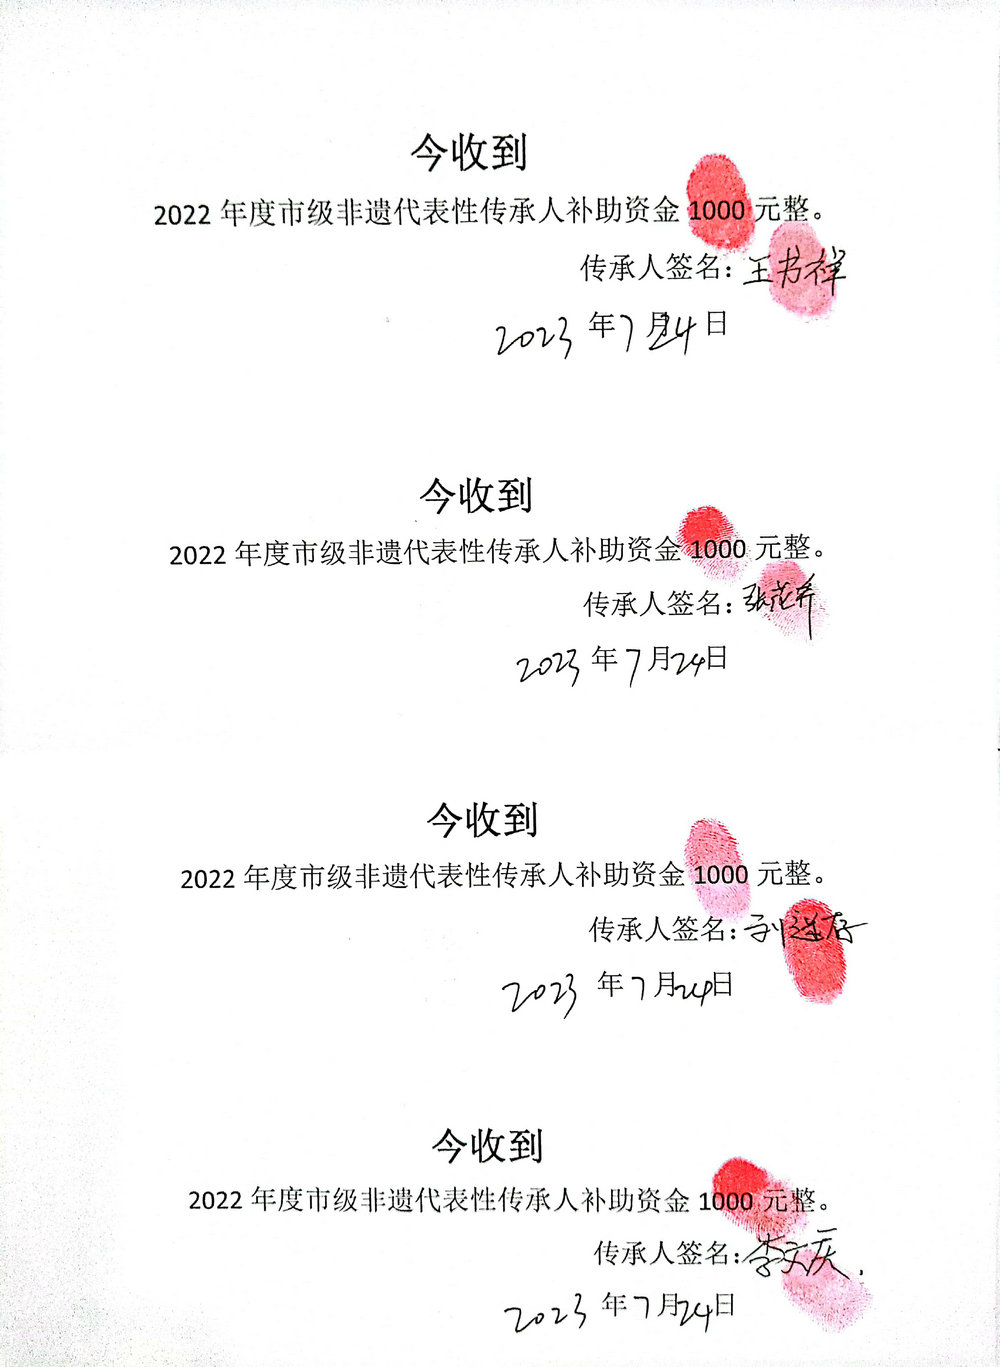 今收到
2022 年度市级非遗代表性传承人补助资金 1000 元整。
传承人签名：王书祥
2023 年 7 月 24 日
今收到
2022 年度市级非遗代表性传承人补助资金 1000 元整。
传承人签名：张花乔
2023 年 7 月 24 日
今收到
2022 年度市级非遗代表性传承人补助资金 1000 元整。
传承人签名：刘存
2023 年 7 月 24 日
今收到
2022 年度市级非遗代表性传承人补助资金 1000 元整。
传承人签名：李文庆
2023 年 7 月 24 日